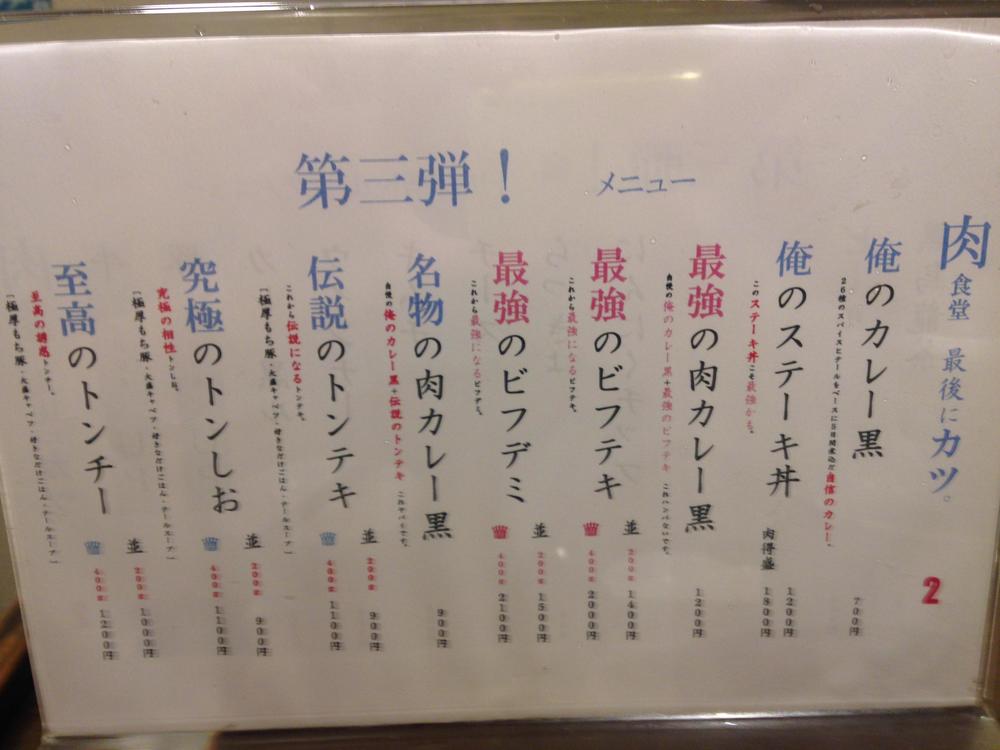 第三弾！ メニュー
肉食堂 最後にカツ。
2
俺のカレー黒
26種のスパイスとテールをベースに5日間煮込だ自信のカレー。
700円
俺のステーキ丼
このステーキ丼こそ最強かも。
1200円
肉得盛 1800円
最強の肉カレー黒
自慢の俺のカレー黒+最強のビフテキ これハンパないです。
1200円
最強のビフテキ
これから最強になるビフテキ。
並 200g 1400円
400g 2000円
最強のビフデミ
これから最強になるビフデミ。
並 200g 1500円
400g 2100円
名物の肉カレー黒
自慢の俺のカレー黒+伝説のトンテキ これヤバイです。
900円
伝説のトンテキ
これから伝説になるトンテキ。
「極厚もち豚・大盛キャベツ・好きなだけごはん・テールスープ」
並 200g 900円
400g 1100円
究極のトンしお
究極の相性トンしお。
「極厚もち豚・大盛キャベツ・好きなだけごはん・テールスープ」
並 200g 900円
400g 1100円
至高のトンチー
至高の誘惑トンチー。
「極厚もち豚・大盛キャベツ・好きなだけごはん・テールスープ」
並 200g 1000円
400g 1200円